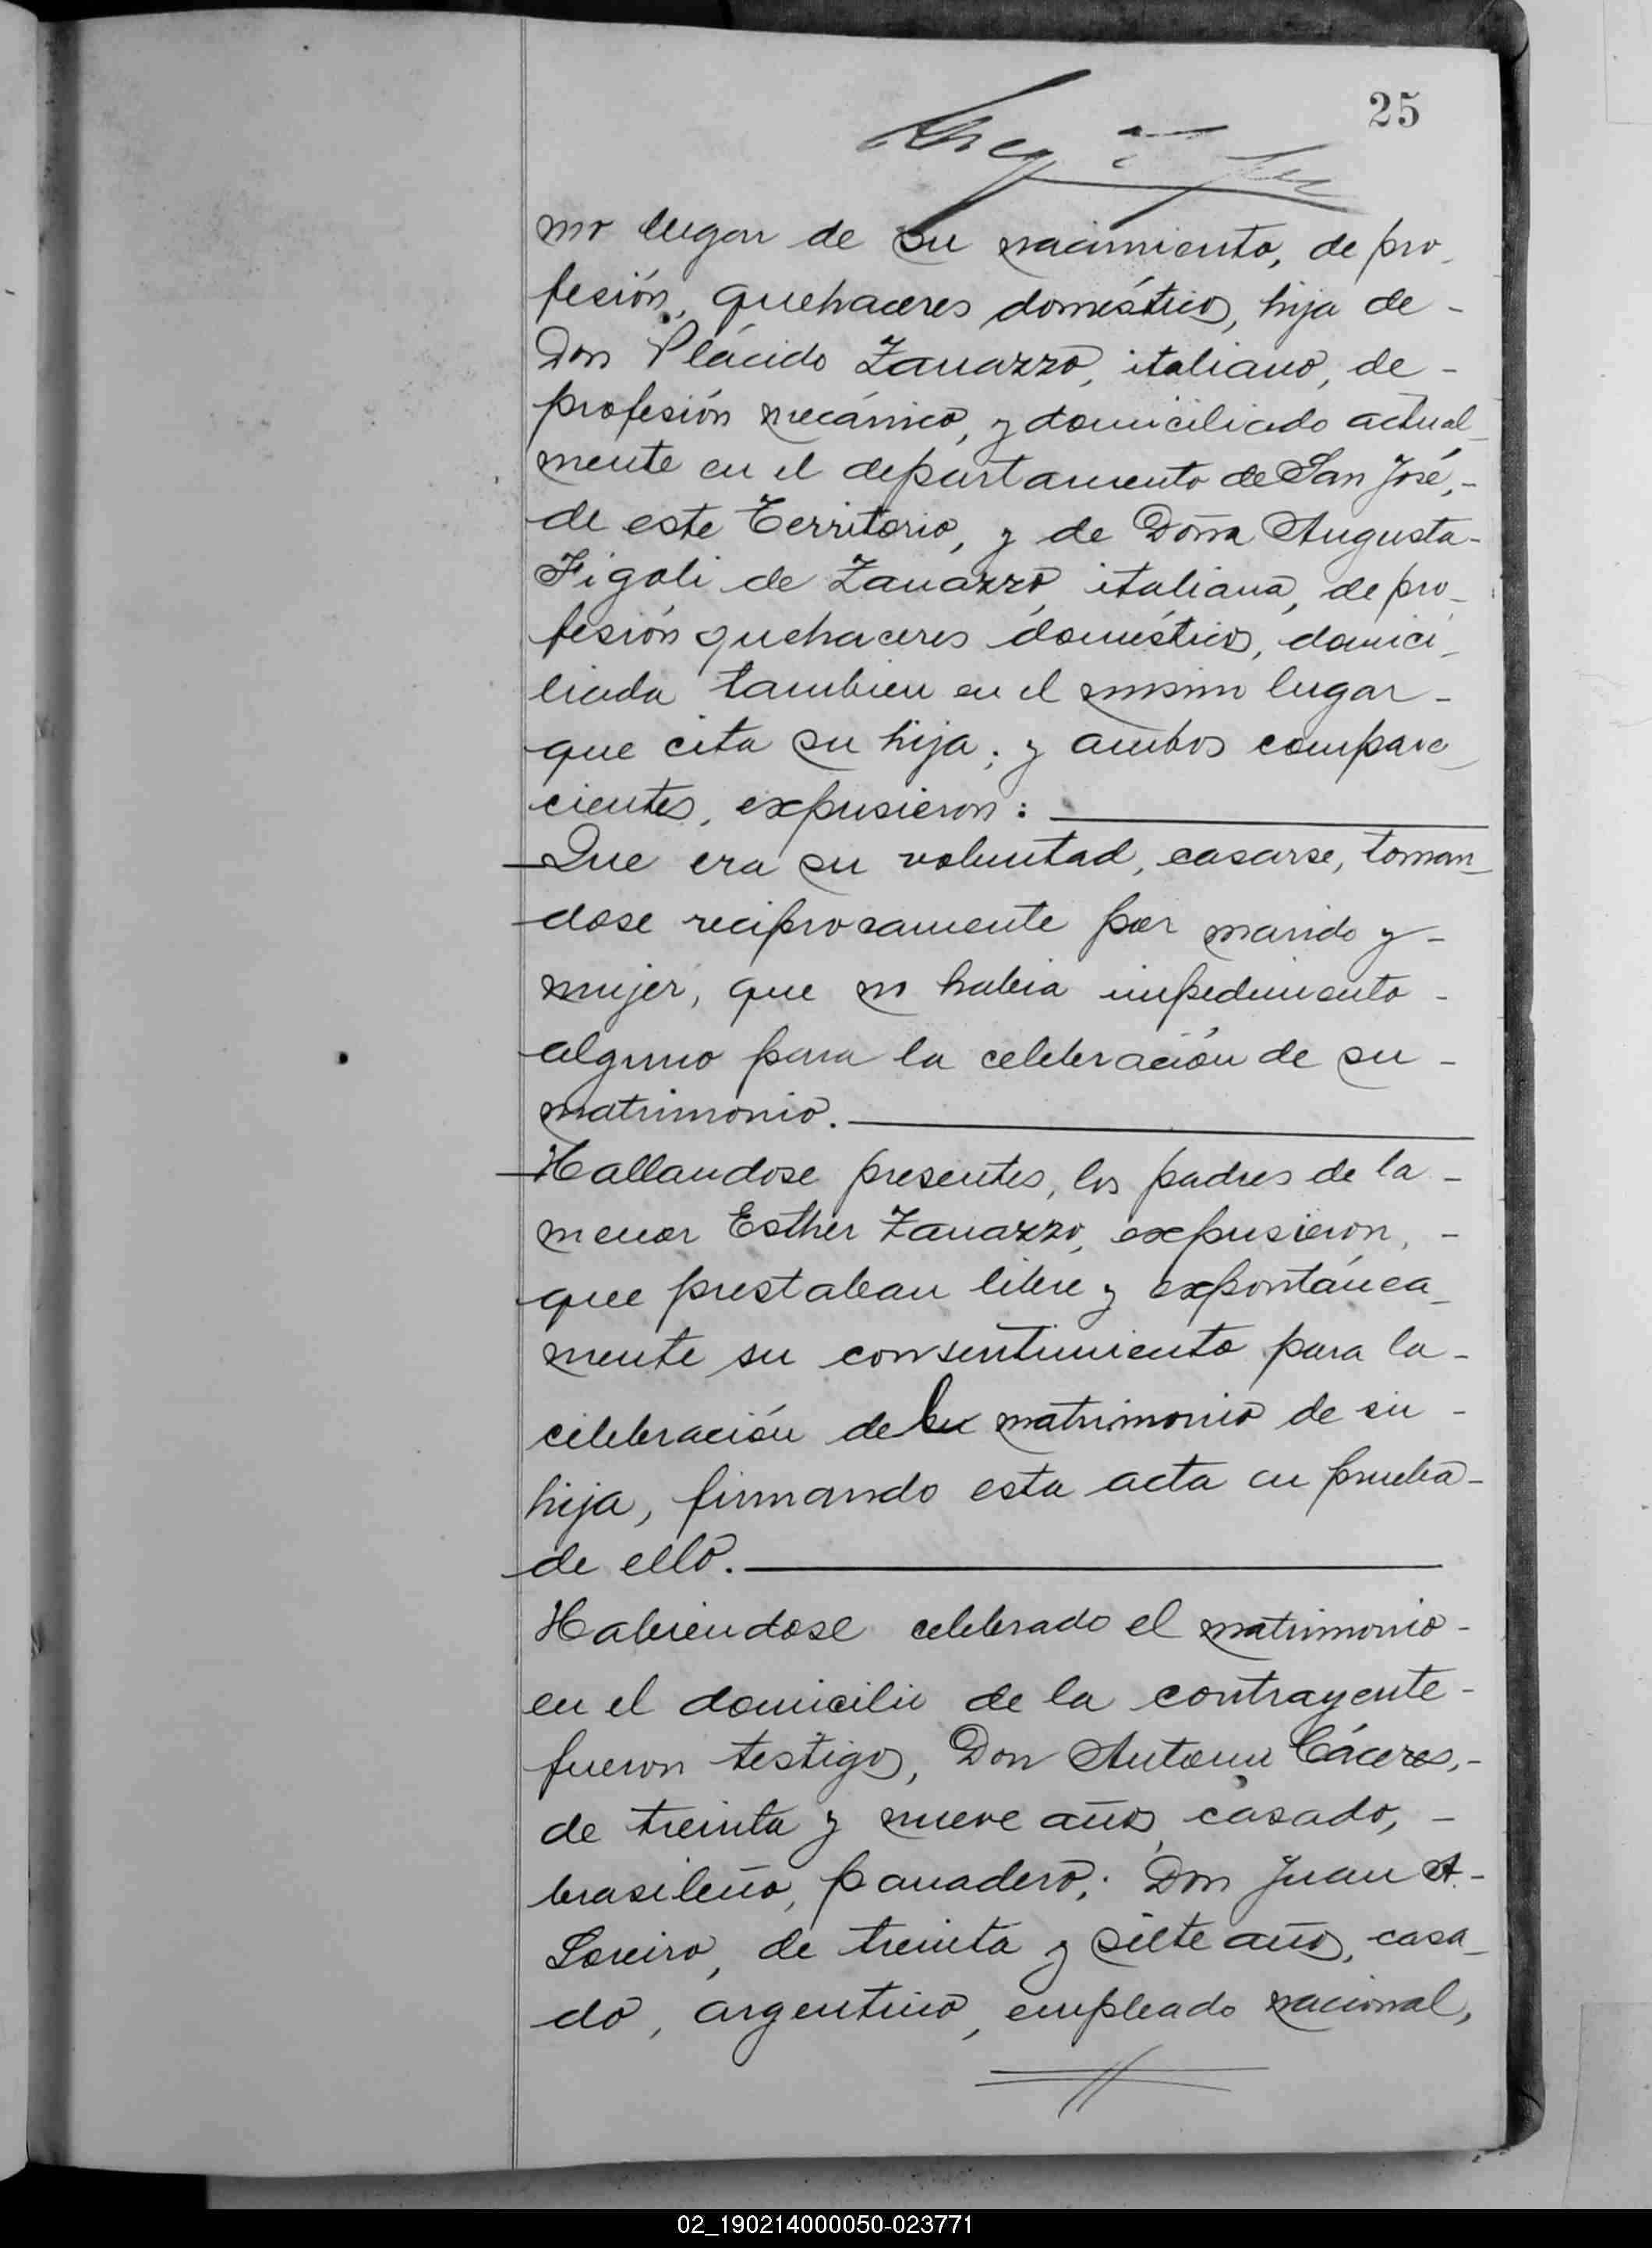 25
mo lugar de su nacimiento, de pro_
fesión, quehaceres domésticos, hija de -
Don Plácido Zanazzo, italiano, de -
profesión mecánico, y domiciliado actual_
mente en el departamento de San José, -
de este Territorio, y de Doña Augusta -
Figoli de Zanazzo, italiana, de pro_
fesión quehaceres domésticos, domici_
liada tambien en el mismo lugar -
que cita su hija; y ambos compare_
cientes, expusieron:
Que era su voluntad, casarse, toman_
dose reciprocamente por marido y -
mujer, que no habia impedimento -
alguno para la celebración de su -
matrimonio.
Hallandose presentes, los padres de la -
menor Esther Zanazzo, expusieron, -
que prestaban libre y expontánea_
mente su consentimiento para la -
celebración de matrimonio de su -
hija, firmando esta acta en prueba -
de ello.
Habiendose celebrado el matrimonio -
en el domicilio de la contrayente -
fueron testigos, Don Antonio Cáceres, -
de treinta y nueve años, casado, -
brasileño, panadero; Don Juan A. -
Loreiro, de treinta y siete años, casa_
do, argentino, empleado nacional,
02_190214000050-023771